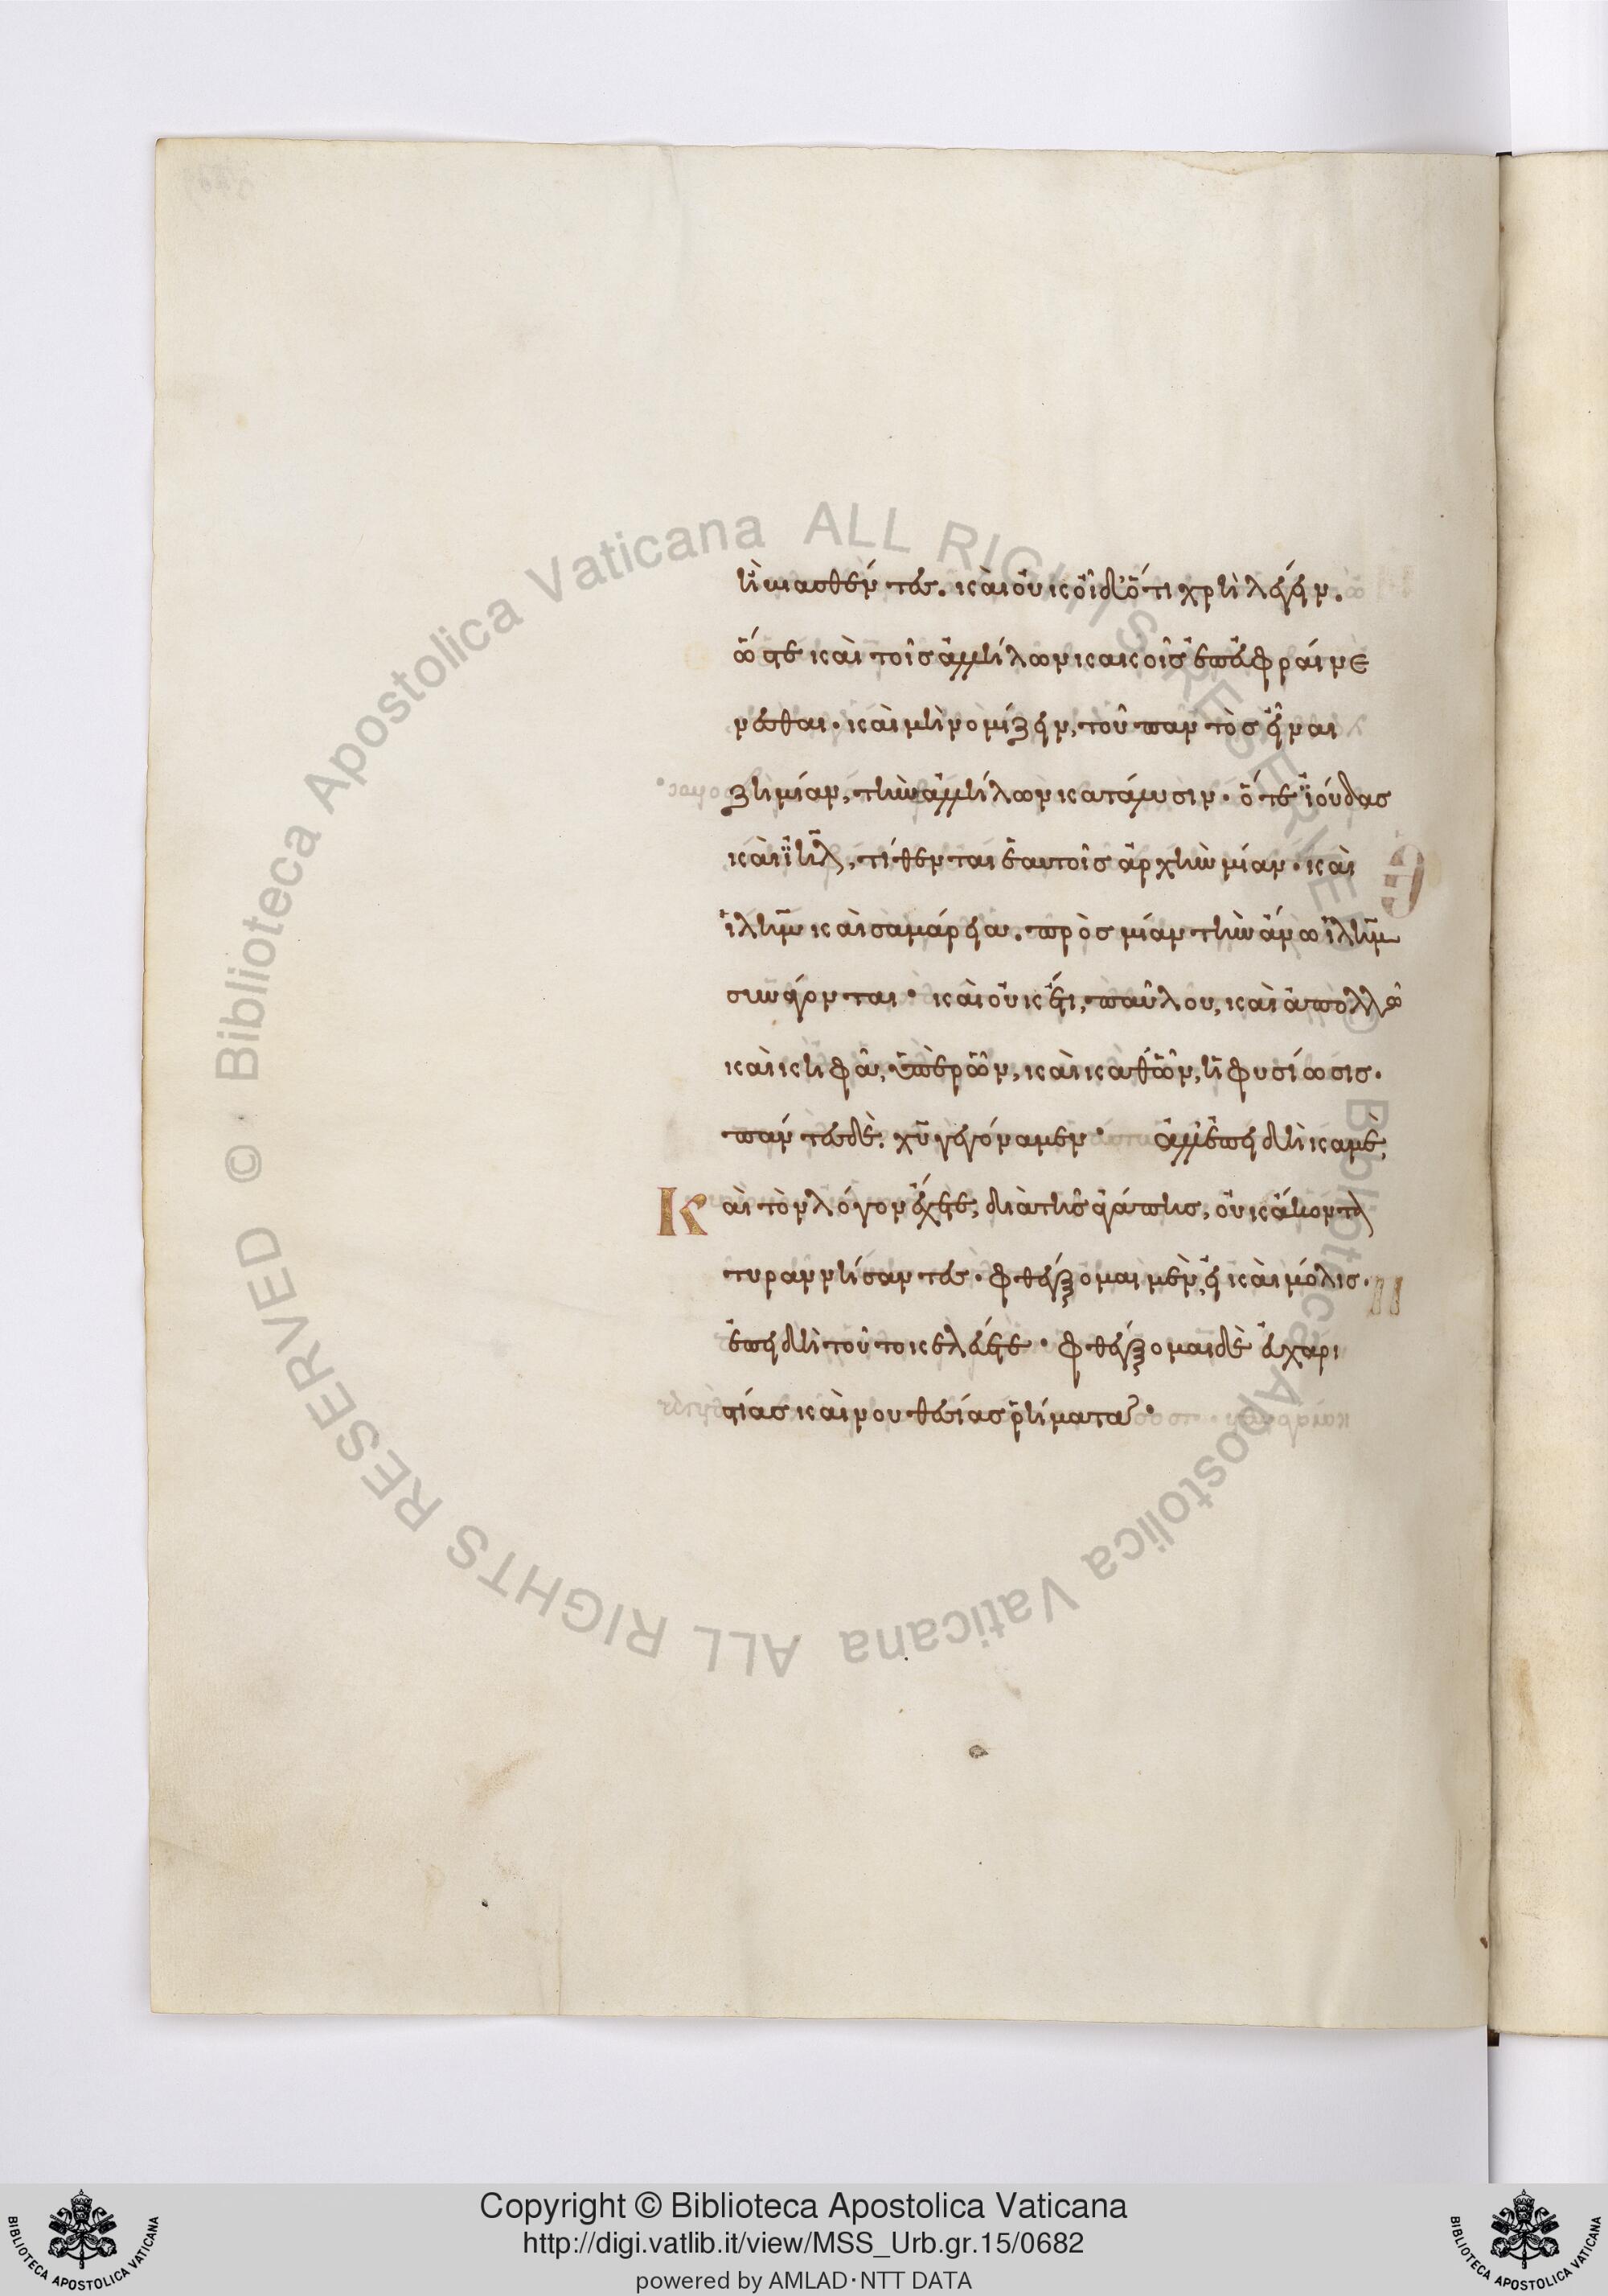 ἡψιασθέντες. καὶ οὐκ οἶδ' ὅτι χρὴ λέγειν.
ὥστε καὶ τοῖς ἀλλήλων κακοῖς ἐπευφραίνε
νεσθαι. καὶ μὴ νομίζειν, τοῦ παντὸς εἶναι
ζημίαν, τὴν ἀλλήλων κατάλυσιν. ὅτε ἰούδας
καὶ ἰηλ, τίθενται ἑαυτοῖς ἀρχὴν μίαν. καὶ
ἰλημ καὶ σαμάρεια. πρὸς μίαν τὴν ἄνω ἰλημ
συνάγονται. καὶ οὐκέτι, παύλου, καὶ ἀπολλὼ
καὶ κηφᾶ, ὑπὲρ ὧν, καὶ καθ' ὧν, ἡ φυσίωσις.
πάντες δὲ, χυ γεγόναμεν. ἀλλ' ἐπειδὴ κἀμὲ,
καὶ τὸν λόγον ἔχετε, διὰ τῆς ἀγάπης, οὐκ ἄκοντα
τυραννήσαντες. φθέγξομαι μὲν, εἰ καὶ μόλις.
ἐπειδὴ τοῦτο κελεύετε. φθέγξομαι δὲ εὐχαρι
στίας καὶ νουθεσίας ῥήματα.
Biblioteca Apostolica Vaticana ALL RIGHTS RESERVED ©
Biblioteca Apostolica Vaticana ALL RIGHTS RESERVED ©
Copyright © Biblioteca Apostolica Vaticana
http://digi.vatlib.it/view/MSS_Urb.gr.15/0682
powered by AMLAD·NTT DATA
BIBLIOTECA APOSTOLICA VATICANA
BIBLIOTECA APOSTOLICA VATICANA